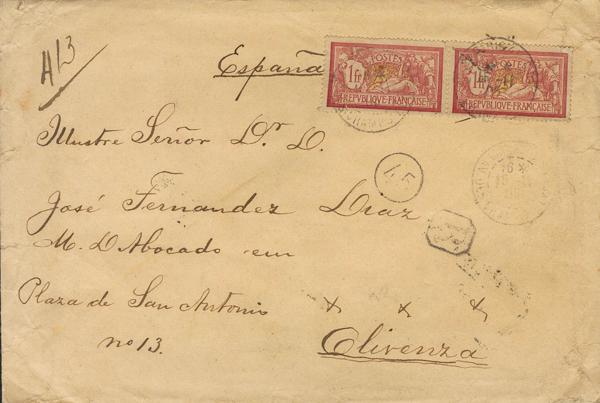 413
España
POSTES
1fr
REPVBLIQUE·FRANÇAISE
POSTES
1fr
REPVBLIQUE·FRANÇAISE
Ilustre Señor Dr. D.
45
José Fernandez Diaz
R
M. D Abocado em
Plaza de San Antonio
no 13.
x x x
Olivenza